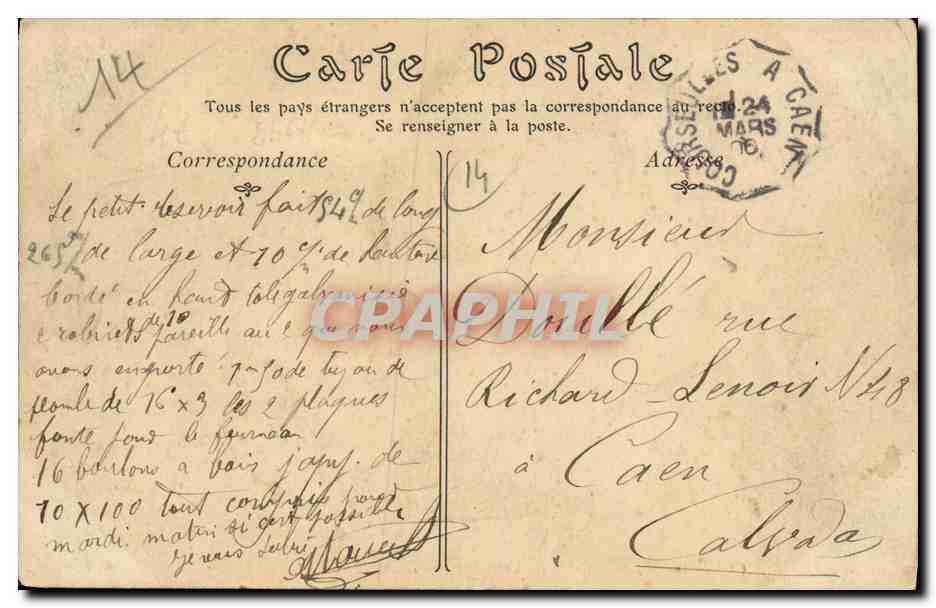 14
Carte Postale
Tous les pays étrangers n'acceptent pas la correspondance au recto.
Se renseigner à la poste.
COURSEULLES A CAEN
24
MARS
06
Correspondance
14
Adresse
Le petit reservoir fait 54 c/ de long
265 de large et 10 c/ de hauteur
bordé en haut tole galvanisée
2 robinets de 10 pareille au 2 que nous
avons emporté 1m50 de tuyau de
plomb de 16 x 3 les 2 plaques
fonte pour le fourneau
16 boulons a bois japy. de
70 x 100 tout compris pour
mardi matin si c'est possible
je vous salue
Monsieur
Douillé rue
Richard-Lenoir N 48
à Caen
Calvados
CPARPHIL